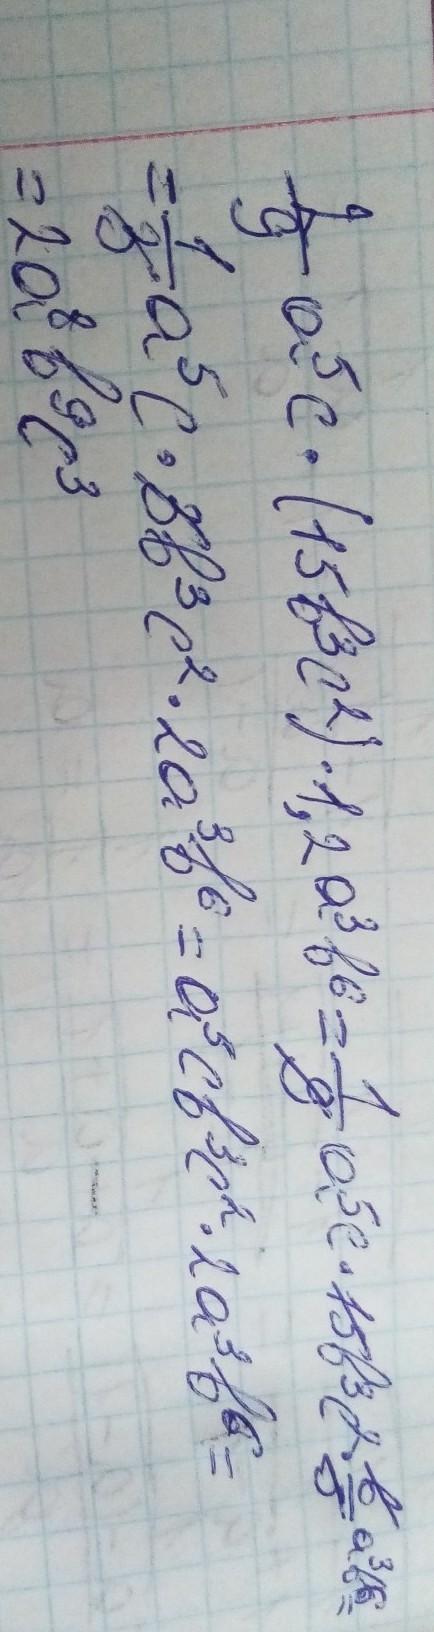 1/9 a⁵c · (15b³c²) · 1,2a³b⁶ = 1/9 a⁵c · 15b³c² · 6/5 a³b⁶ =
= 1/3 a⁵c · 3b³c² · 2a³b⁶ = a⁵cb³c² · 2a³b⁶ =
= 2a⁸b⁹c³